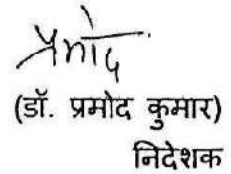 प्रमोद
(डॉ. प्रमोद कुमार)
निदेशक